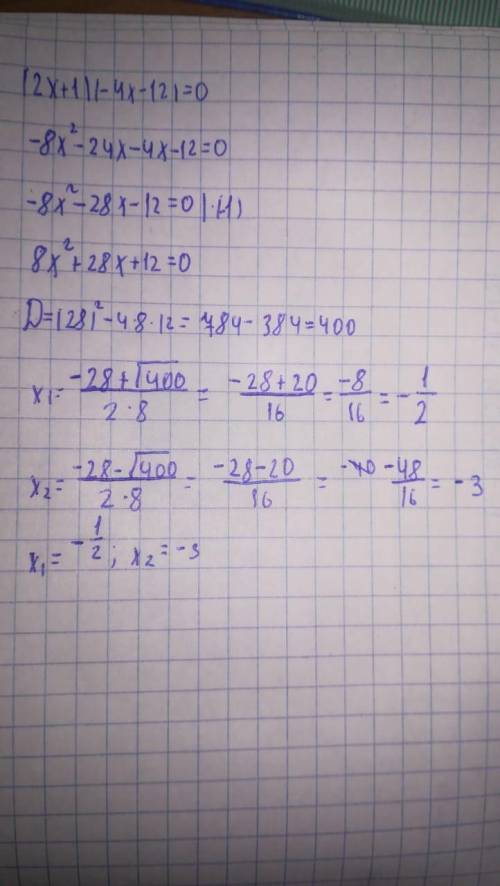 (2x+1)(-4x-12)=0
-8x²-24x-4x-12=0
-8x²-28x-12=0 |·(-1)
8x²+28x+12=0
D=(28)²-4·8·12=784-384=400
x₁=(-28+√400)/(2·8)=(-28+20)/16=-8/16=-1/2
x₂=(-28-√400)/(2·8)=(-28-20)/16=-48/16=-3
x₁=-1/2; x₂=-3